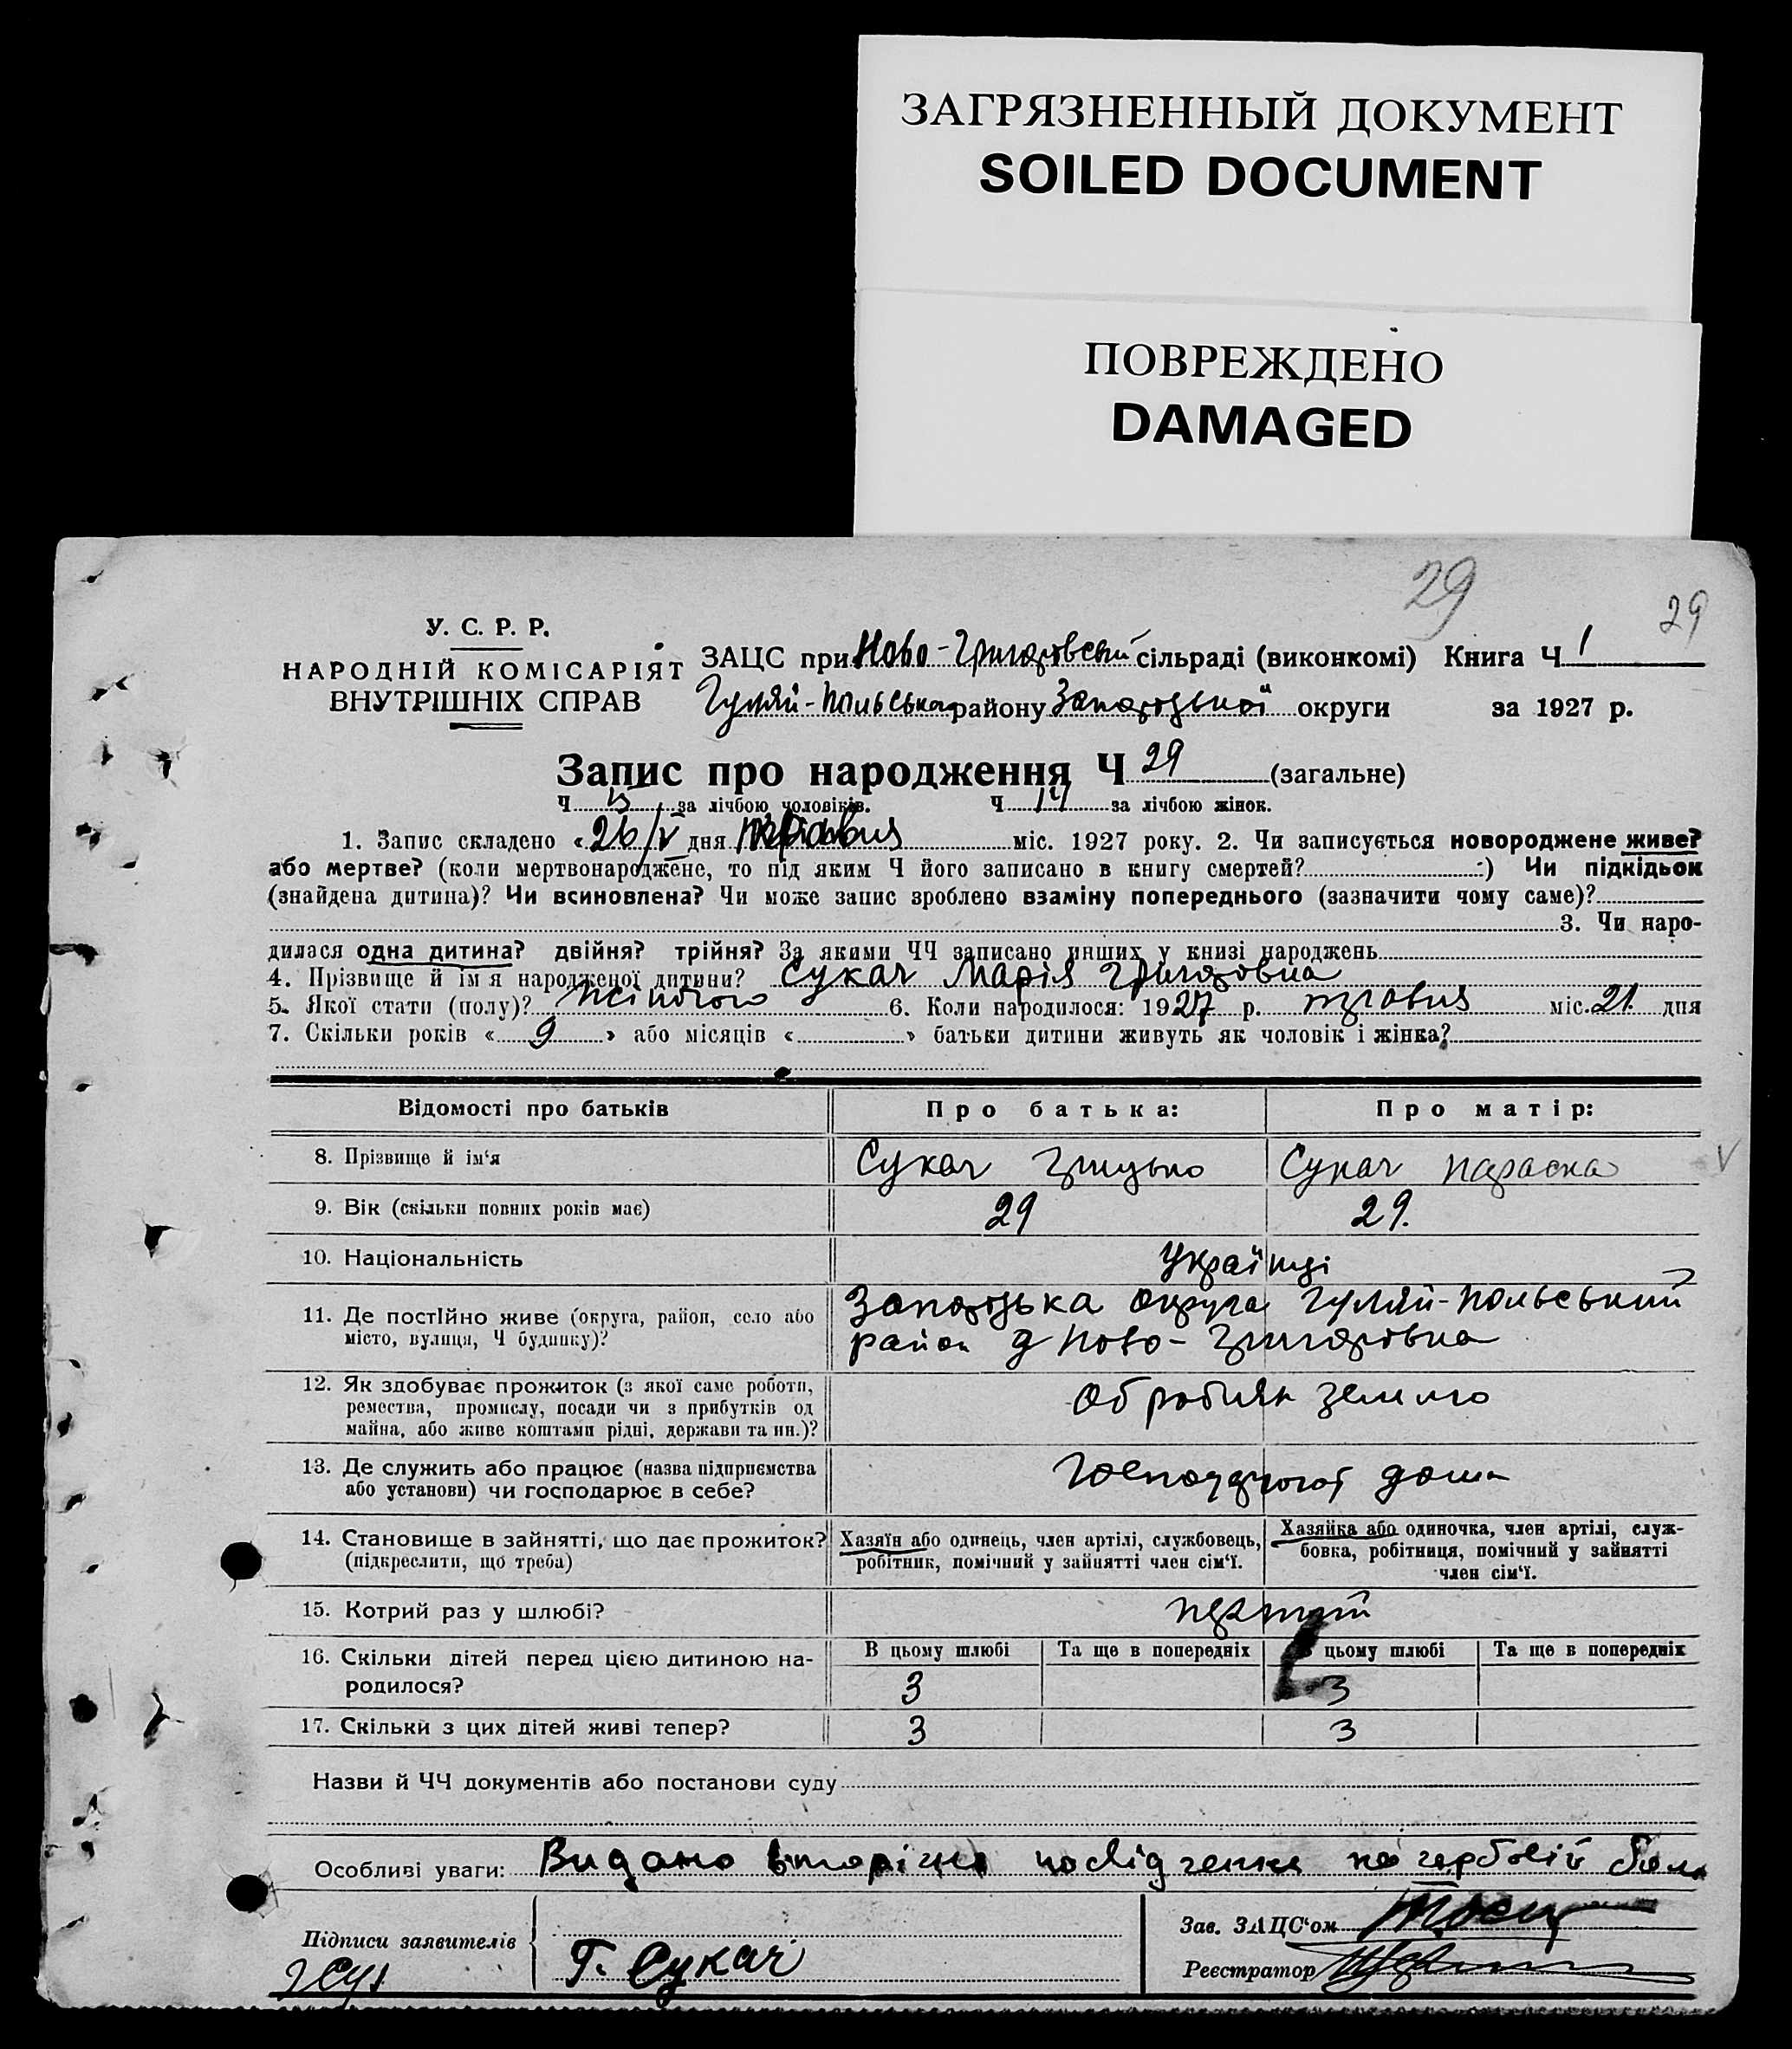 ЗАГРЯЗНЕННЫЙ ДОКУМЕНТ
SOILED DOCUMENT
ПОВРЕЖДЕНО
DAMAGED
29
29
У. С. Р. Р.
НАРОДНІЙ КОМІСАРІЯТ
ВНУТРІШНІХ СПРАВ
ЗАЦС при Ново-Григоровській сільраді (виконкомі) Книга Ч 1
Гуляй-Польська району Запорізької округи за 1927 р.
Запис про народження Ч 29 (загальне)
Ч 15 за лічбою чоловіків. Ч 14 за лічбою жінок.
1. Запис складено « 26/V дня травня міс. 1927 року. 2. Чи записується новороджене живе?
або мертве? (коли мертвонароджене, то під яким Ч його записано в книгу смертей? ) Чи підкідьок
(знайдена дитина)? Чи всиновлена? Чи може запис зроблено взаміну попереднього (зазначити чому саме)?
3. Чи наро-
дилася одна дитина? двійня? трійня? За якими ЧЧ записано инших у книзі народжень
4. Прізвище й ім'я народженої дитини? Сукач Марія Григоровна
5. Якої стати (полу)? жіночого 6. Коли народилося: 1927 р. травня міс. 21 дня
7. Скільки років « 9 » або місяців « » батьки дитини живуть як чоловік і жінка?
Відомості про батьків Про батька: Про матір:
8. Прізвище й ім'я Сукач Грицько Сукач Параска
9. Вік (скільки повних років має) 29 29.
10. Національність Українці
11. Де постійно живе (округа, район, село або Запорізька округа Гуляй-Польський
місто, вулиця, Ч будинку)? район д Ново-Григоровка
12. Як здобуває прожиток (з якої саме роботи, оброблян землю
ремества, промислу, посади чи з прибутків од
майна, або живе коштами рідні, держави та ин.)?
13. Де служить або працює (назва підприємства
або установи) чи господарює в себе? дома
14. Становище в зайнятті, що дає прожиток? Хазяїн або одинець, член артілі, службовець, Хазяйка або одиночка, член артілі, служ-
(підкреслити, що треба) робітник, помічний у зайнятті член сім'ї. бовка, робітниця, помічний у зайнятті
член сім'ї.
15. Котрий раз у шлюбі? первий
16. Скільки дітей перед цією дитиною на- В цьому шлюбі Та ще в попередніх В цьому шлюбі Та ще в попередніх
родилося? 3 3
17. Скільки з цих дітей живі тепер? 3 3
Назви й ЧЧ документів або постанови суду
Особливі уваги: Видано вторічне посвідчення на гербовій
Підписи заявителів Г. Сукач
Зав. ЗАЦС'ом
Реєстратор